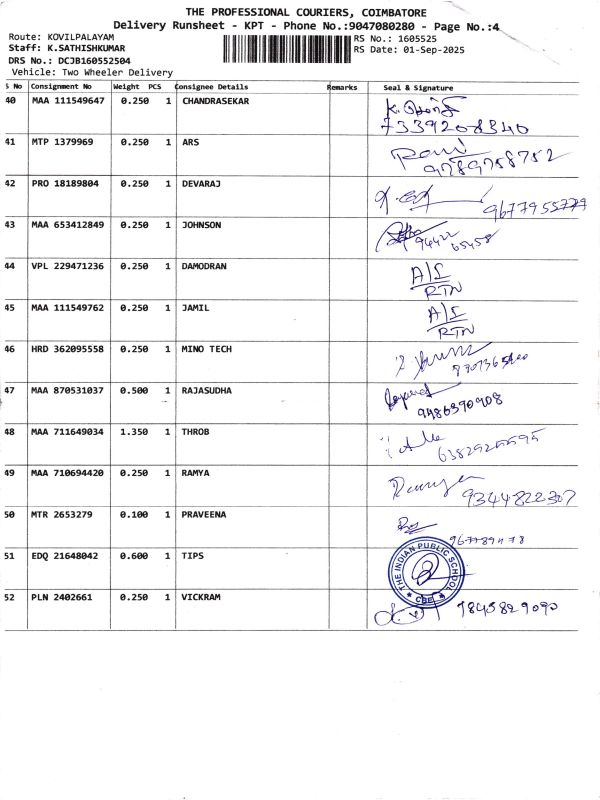 THE PROFESSIONAL COURIERS, COIMBATORE
Delivery Runsheet - KPT - Phone No.:9047080280 - Page No.:4
Route: KOVILPALAYAM
RS No.: 1605525
Staff: K.SATHISHKUMAR
RS Date: 01-Sep-2025
DRS No.: DCJB160552504
Vehicle: Two Wheeler Delivery
S No Consignment No Weight PCS Consignee Details Remarks Seal & Signature
40 MAA 111549647 0.250 1 CHANDRASEKAR
7339208340
41 MTP 1379969 0.250 1 ARS
9789758752
42 PRO 18189804 0.250 1 DEVARAJ
43 MAA 653412849 0.250 1 JOHNSON
94422 65458
44 VPL 229471236 0.250 1 DAMODRAN A/S
RTN
45 MAA 111549762 0.250 1 JAMIL A/S
RTN
46 HRD 362095558 0.250 1 MINO TECH
47 MAA 870531037 0.500 1 RAJASUDHA
9486390908
48 MAA 711649034 1.350 1 THROB
49 MAA 710694420 0.250 1 RAMYA Ramya
9344822307
50 MTR 2653279 0.100 1 PRAVEENA
51 EDQ 21648042 0.600 1 TIPS THE INDIAN PUBLIC SCHOOL
CBE
52 PLN 2402661 0.250 1 VICKRAM 9845829090